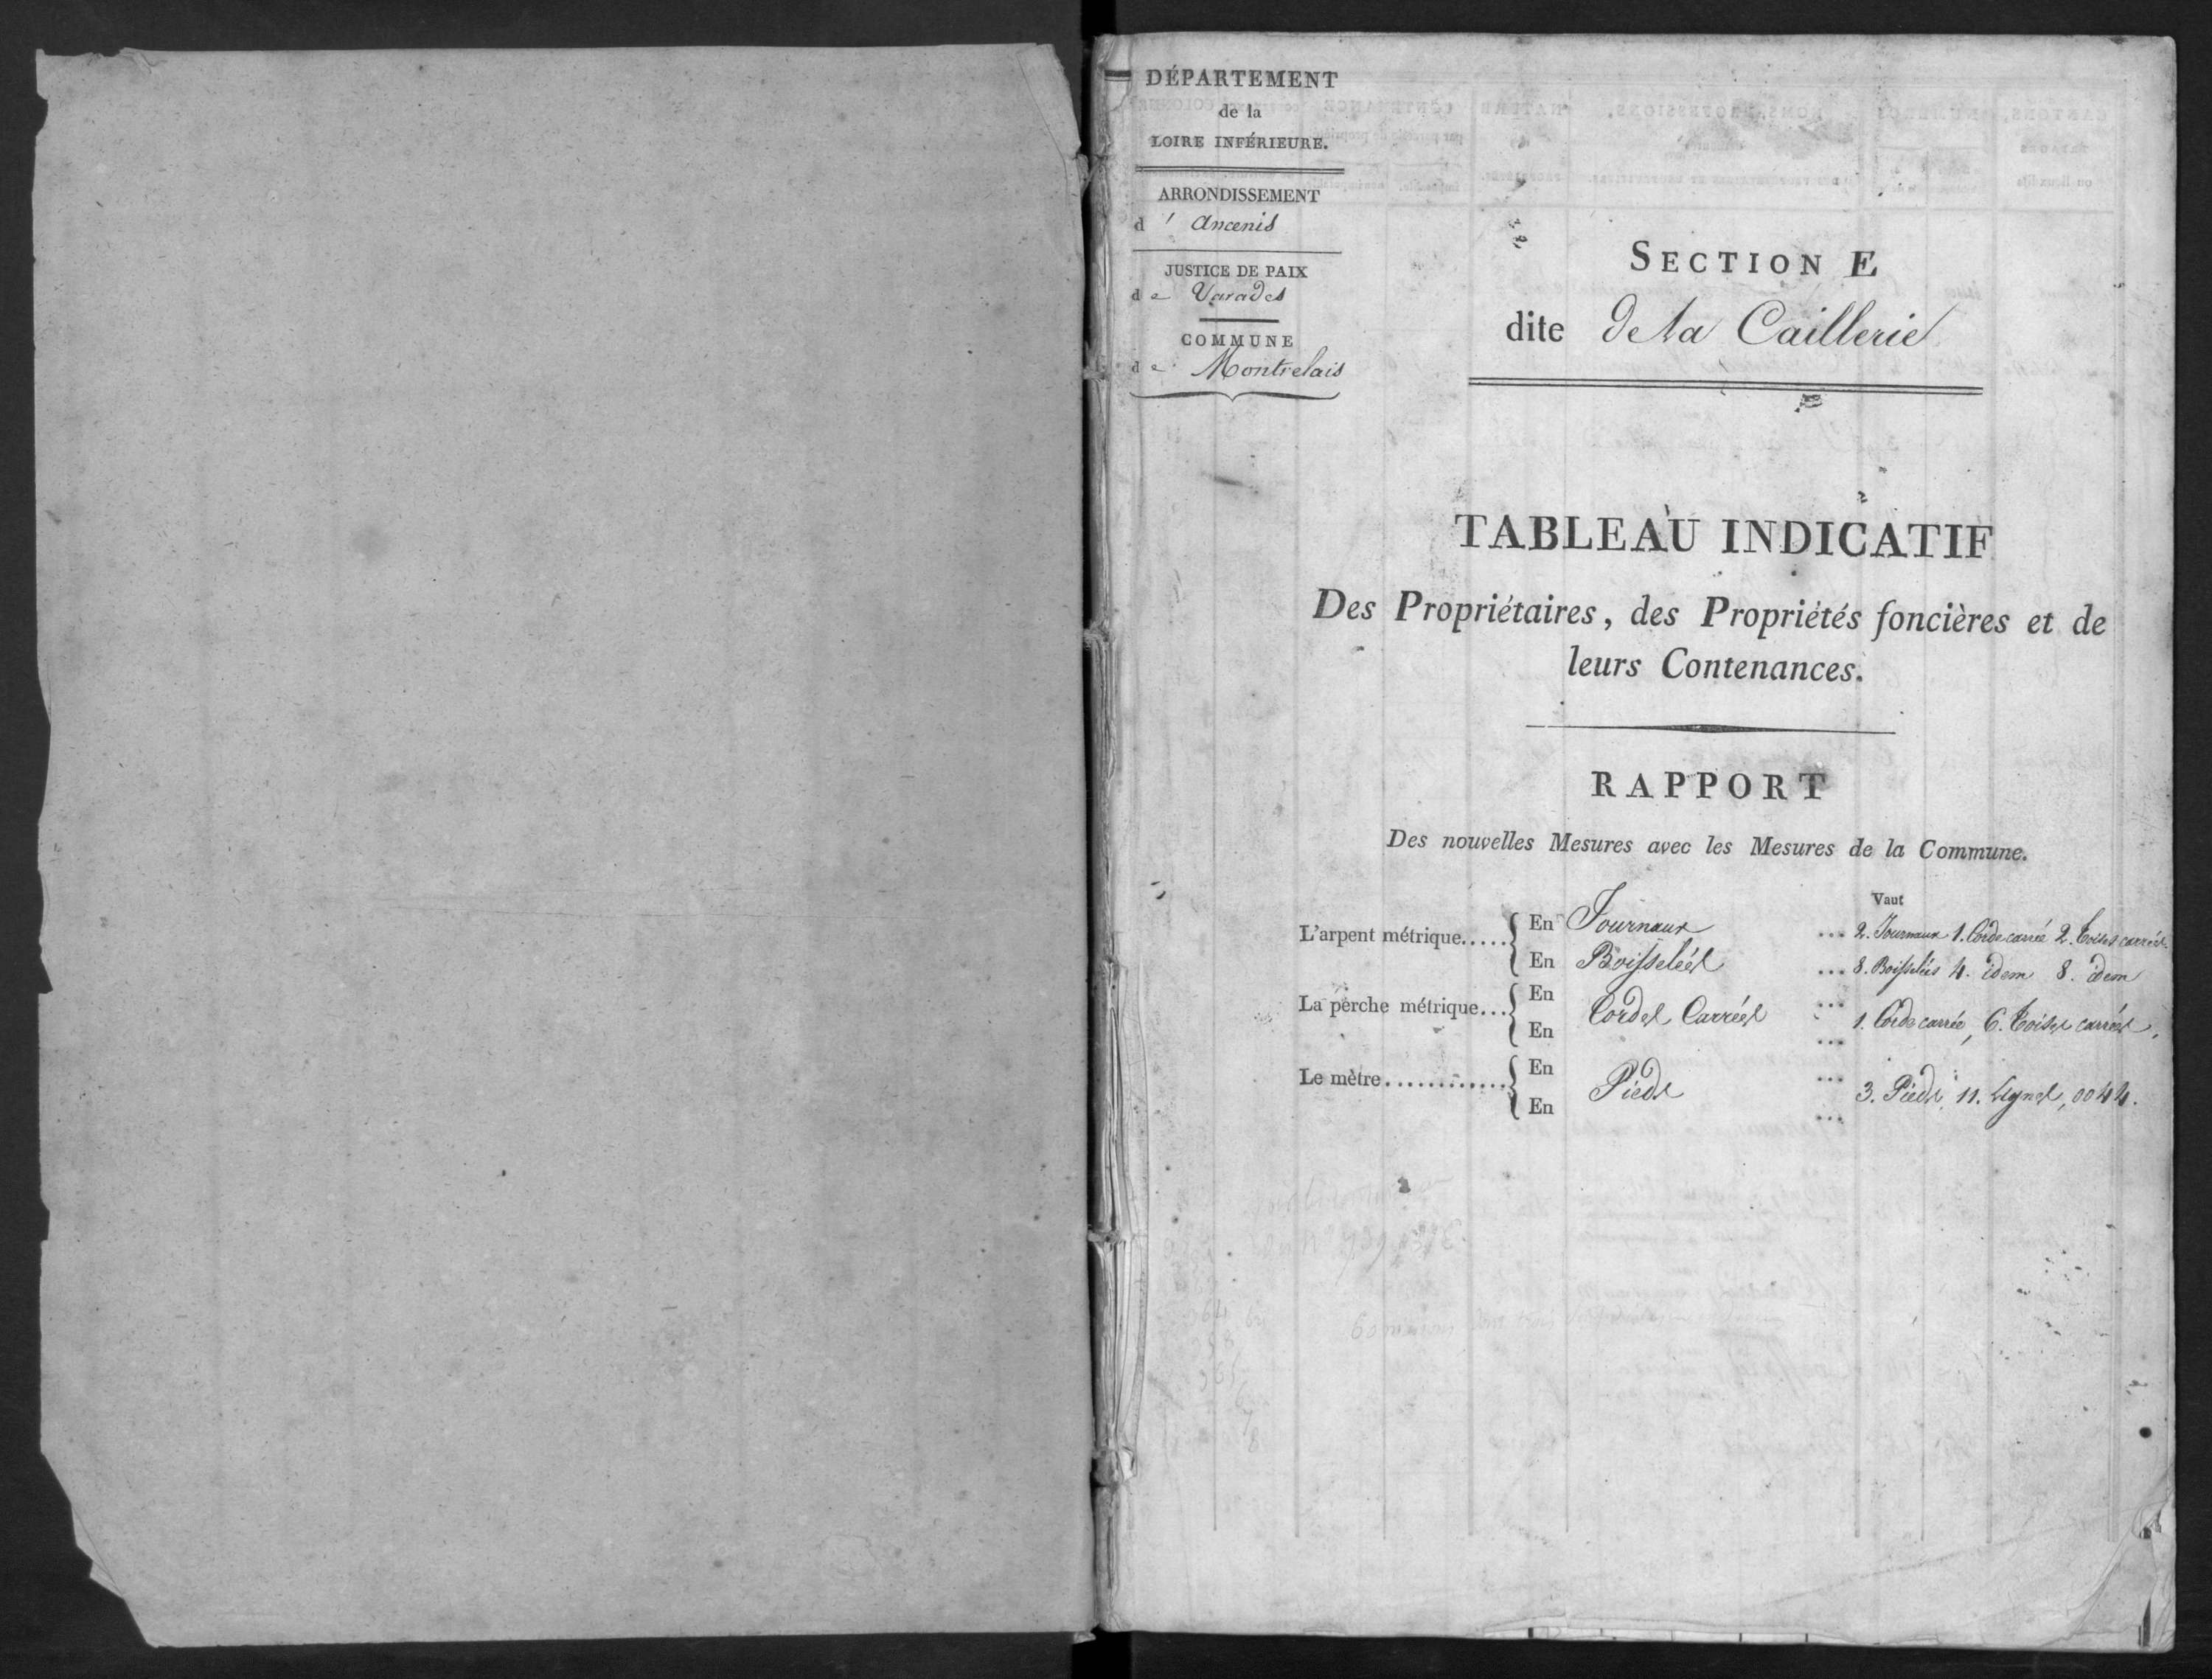 DÉPARTEMENT
de la
LOIRE INFÉRIEURE.
ARRONDISSEMENT
d' Ancenis
JUSTICE DE PAIX
de Varades
COMMUNE
de Montrelais
SECTION E
dite de la Caillerie
TABLEAU INDICATIF
Des Propriétaires, des Propriétés foncières et de
leurs Contenances.
RAPPORT
Des nouvelles Mesures avec les Mesures de la Commune.
Vaut
L'arpent métrique..... { En Journaux ... 2. Journaux 1. Corde carrée 2. Toises carrées.
En Boisselées ... 8. Boisselées 4. idem 8. idem
La perche métrique... { En ...
Cordes Carrées 1. Corde carrée, 6. Toises carrées,
En ...
Le mètre............ { En ...
Pieds 3. Pieds, 11. Lignes, 0044.
En ...